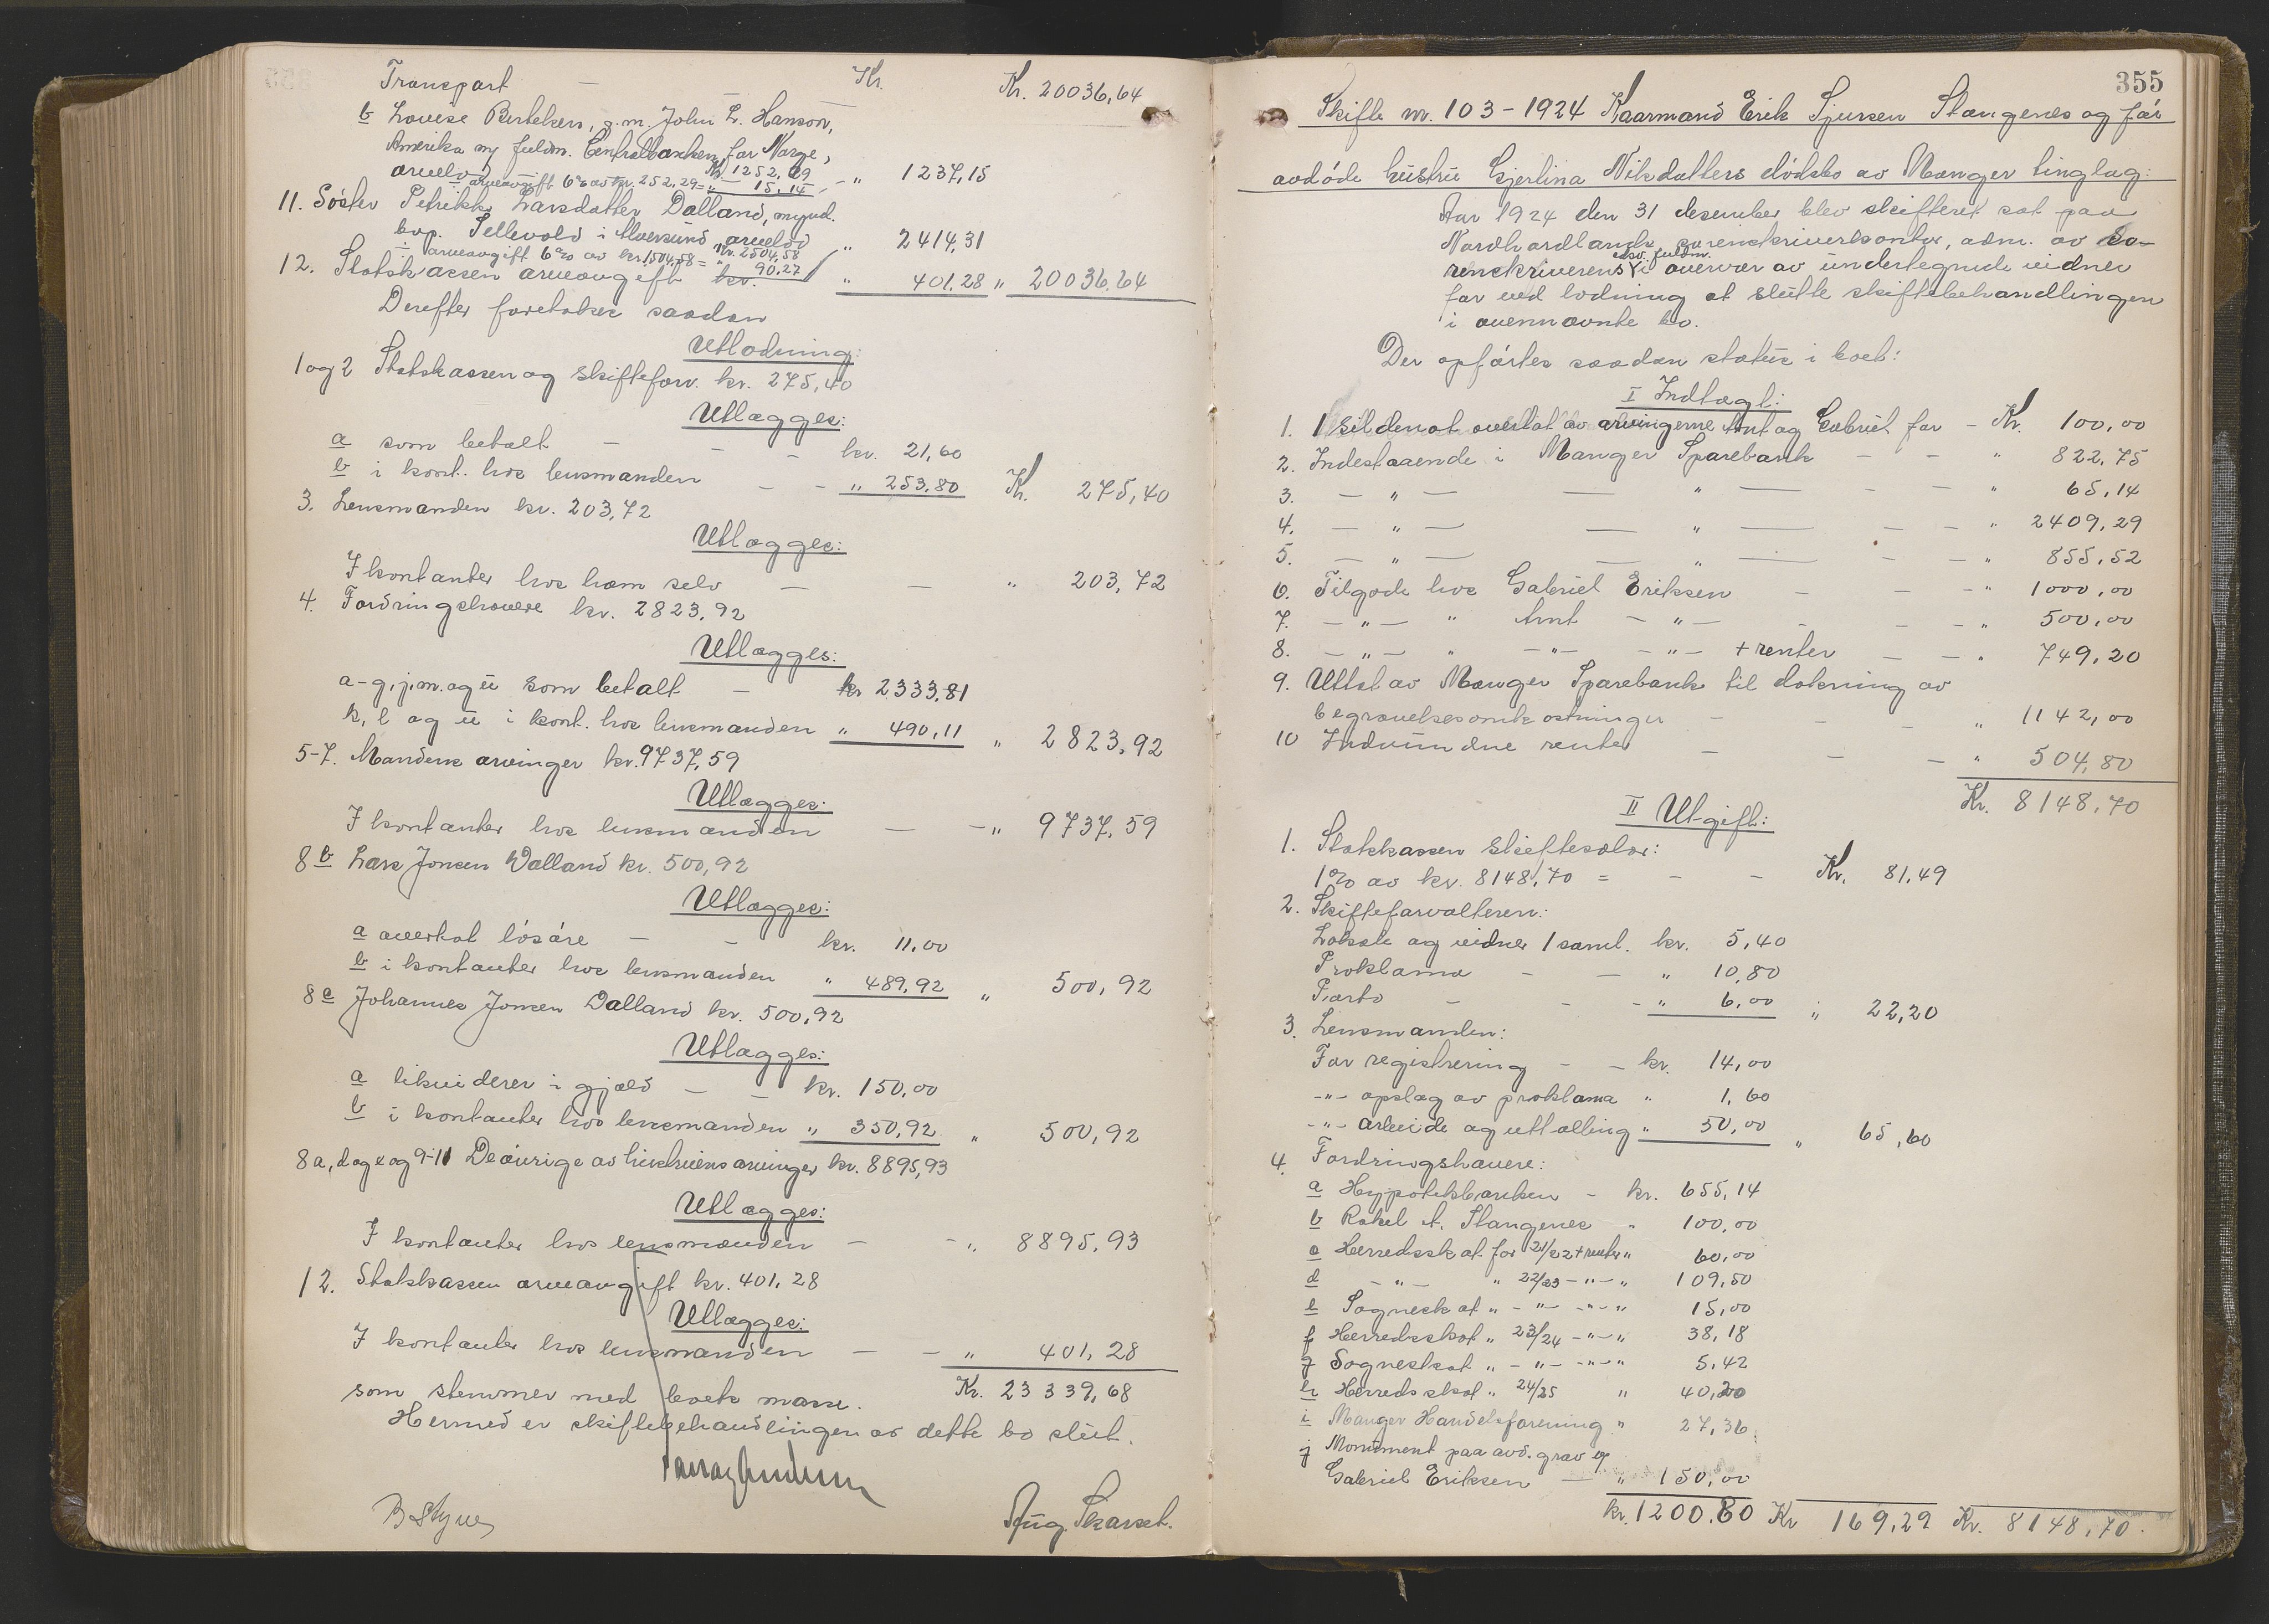 Transport — Kr. Kr. 20036,64
b Lovise Bertelsen, g.m. John L. Hanson,
Amerika m/ fuldm. Centralbanken for Norge,
arvelod Kr 1252,29
÷ arveavgift 6% av kr. 252,29 = " 15,14 - " 1237,15
11. Søster Petrikke Larsdatter Dalland, mynd.
bop. Tellevold i Alversund, arvelod kr. 2504,58 " 2414,31
÷ arveavgift 6% av kr. 1504,58 = " 90,27
12. Statskassen arveavgift kr. " 401,28 " 20036,64
Derefter foretokes saadan
Utlodning:
1 og 2 Statskassen og skifteforv. kr. 275,40
Utlægges:
a som betalt — — - kr. 21,60
b i kont. hos lensmanden — - " 253,80 Kr. 275,40
3. Lensmanden kr. 203,72
Utlægges:
I kontanter hos ham selv — — " 203,72
4. Fordringshavere kr. 2823,92
Utlægges:
a-g, j, m. og ü som betalt — kr 2333,81
k, l og ü i kont. hos lensmanden " 490,11 " 2823,92
5-7. Mandens arvinger kr. 9737,59
Utlægges:
I kontanter hos lensmanden — - " 9737,59
8 b Lars Jonsen Dalland kr. 500,92
Utlægges:
a overtat løsøre — - kr. 11,00
b i kontanter hos lensmanden " 489,92 " 500,92
8 c Johannes Jonsen Dalland kr. 500,92
Utlægges:
a likviderer i gjæld — — kr. 150,00
b i kontanter hos lensmanden " 350,92 " 500,92
8 a, d og e og 9-11 De øvrige av hustruens arvinger kr. 8895,93
Utlægges:
I kontanter hos lensmanden — - " 8895,93
12. Statskassen arveavgift kr. 401,28
Utlægges:
I kontanter hos lensmanden — — " 401,28
som stemmer med boets masse. Kr. 23339,68
Hermed er skiftebehandlingen av dette bo slut.
B Styve
Aug. Skarset.
355
Skifte nr. 103-1924 Kaarmand Erik Sjursen Stangenes og før
avdøde hustru Gjertina Nilsdatters dødsbo av Manger tinglag:
Aar 1924 den 31 desember blev skifteret sat paa
Nordhordlands sorenskriverkontor, adm. av so-
renskriverens eds. fuldm. i overvær av undertegnede vidner
for ved lodning at slutte skiftebehandlingen
i ovennævnte bo.
Der opførtes saadan status i boet:
I Indtægt:
1. 1 sildenot overtat av arvingerne Arnt og Gabriel for - Kr. 100,00
2. Indestaaende i Manger Sparebank — — " 822,75
3. — " — — " — — — " 65,14
4. — " — — " — — — " 2409,29
5. — " — — " — — — " 855,52
6. Tilgode hos Gabriel Eriksen — — - " 1000,00
7. — " — " Arnt — " — - — " 500,00
8. — " — " — " — — " — + renter — — " 749,20
9. Uttat av Manger Sparebank til dækning av
begravelsesomkostninger — — — " 1142,00
10 Indvundne renter — — — " 504,80
Kr. 8148,70
II Utgift:
1. Statskassen skiftesalær:
1% av kr. 8148,70 = — — Kr. 81,49
2. Skifteforvalteren:
Lokale og vidner 1 saml. kr. 5,40
Proklama — — " 10,80
Porto — — - " 6,00 " 22,20
3. Lensmanden:
For registrering - - kr. 14,00
- " - opslag av proklama " 1,60
- " - arbeide og uttælling " 50,00 " 65,60
4. Fordringshavere:
a Hypotekbanken - kr. 655,14
b Rakel A. Stangenes " 100,00
c Herredsskat for 21/22 + renter " 60,00
d — " — " 22/23 - " - " 109,50
e Sogneskat " - " - - " - " 15,00
f Herredsskat " 23/24 - " - " 38,18
g Sogneskat " - " - - " - " 5,42
h Herredsskat " 24/25 " 40,20
i Manger Handelsforening " 27,36
j Monument paa avd. grav v/
Gabriel Eriksen — " 150,00
kr. 1200,80 Kr 169,29 Kr. 8148,70.